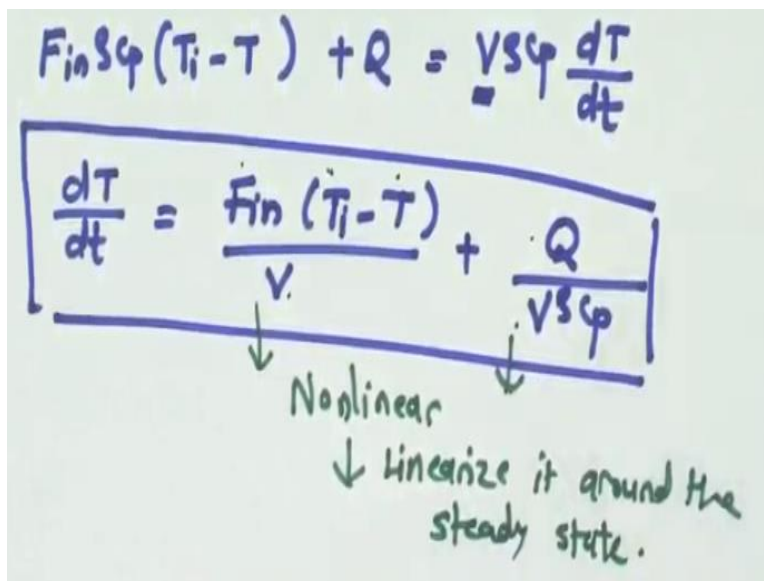 Fin ρCp (Ti - T) + Q = Vρcp dT/dt
dT/dt = Fin (Ti - T)/V + Q/Vρcp
↓ ↓
Nonlinear
↓ Linearize it around the
steady state.